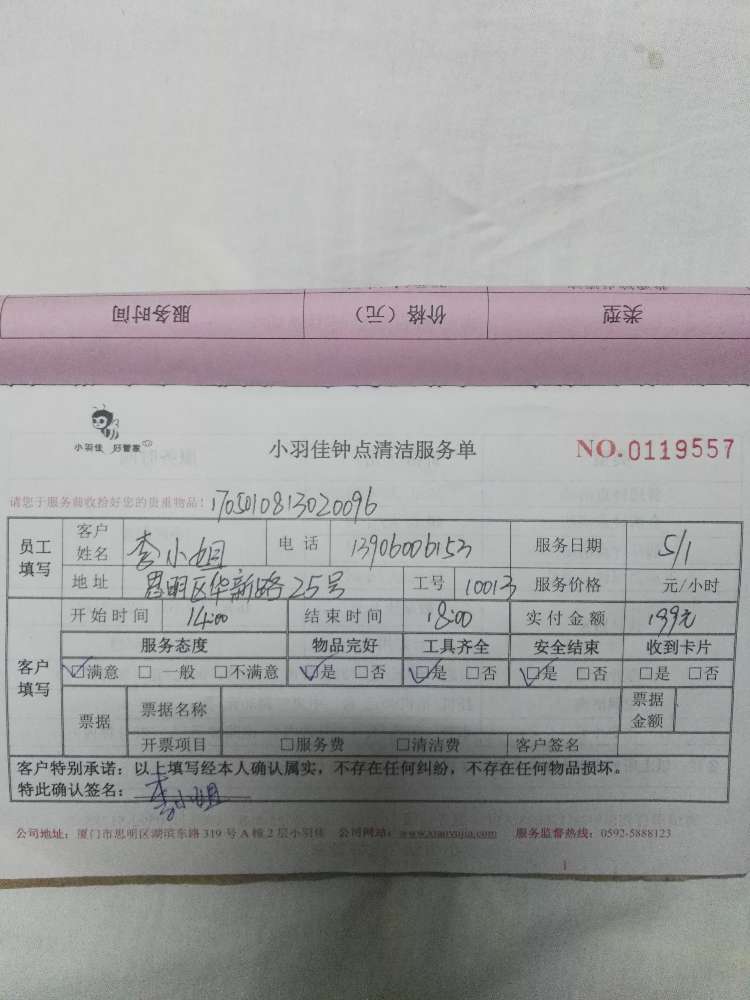 服务时间 价格（元） 类型
小羽佳 好管家
小羽佳钟点清洁服务单
NO.0119557
请您于服务前收拾好您的贵重物品！170501081302009​6
员工填写 客户姓名 李小姐 电话 13906006153 服务日期 5/1
地址 思明区华新路25号 工号 10013 服务价格 元/小时
客户填写 开始时间 14:00 结束时间 18:00 实付金额 199元
服务态度 物品完好 工具齐全 安全结束 收到卡片
☑满意 □一般 □不满意 ☑是 □否 ☑是 □否 ☑是 □否 □是 □否
票据 票据名称 票据金额
开票项目 □服务费 □清洁费 客户签名
客户特别承诺：以上填写经本人确认属实，不存在任何纠纷，不存在任何物品损坏。
特此确认签名：李小姐
公司地址：厦门市思明区湖滨东路319号A幢2层小羽佳 公司网站：www.xiaoyujia.com 服务监督热线：0592-5888123
1